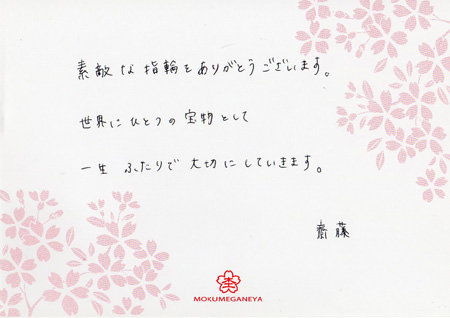 素敵な指輪をありがとうございます。
世界にひとつの宝物として
一生 ふたりで大切にしていきます。
齊藤
MOKUMEGANEYA